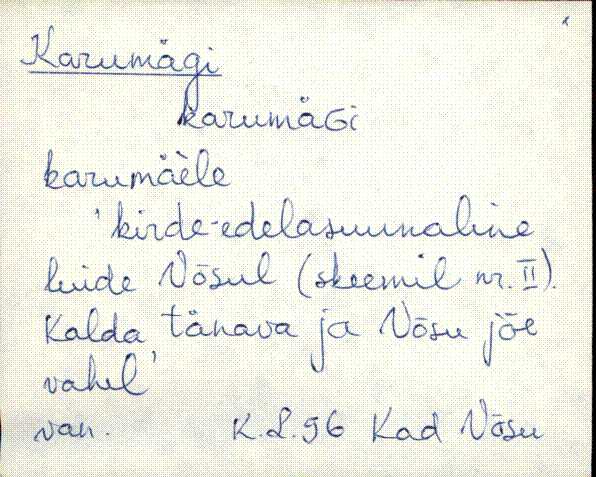 Karumägi
karumäGi
karumäele
'kirde-edelasuunaline
luide Võsul (skeemil nr. II).
Kalda tänava ja Võsu jõe
vahel'
van. K.L.56 Kad Võsu